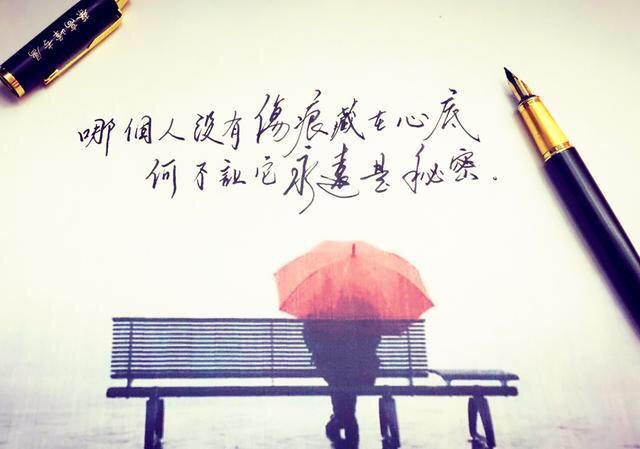 哪個人沒有傷痕藏在心底
何不讓它永遠是秘密.